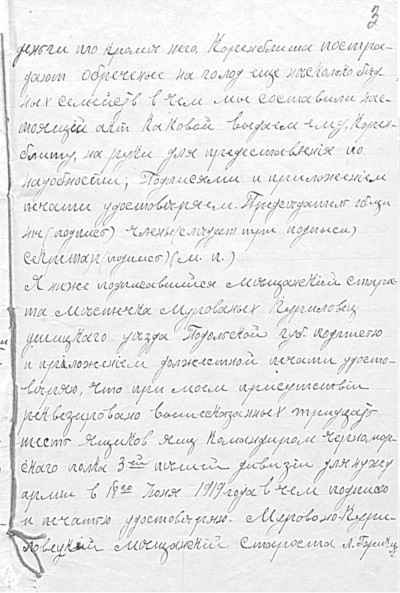 3
деньги что кроме него Коренблита постра-
дают обреченые на голод еще несколько бед-
ных семейств в чем мы составили нас-
тоящий акт каковой выдаем ему, Корен-
блиту, на руки для предоставления по
надобности, Подписями и приложением
печати удостоверяем. Председатель общи-
ны (подпись) члены (следует три подписи)
секретарь (подпись) (м. п.)
Я ниже подписавшийся Мещанский старос-
та Местечка Мурованых Куриловец
ушицкаго уезда Подольской губ. подписью
и приложением должностной печати удосто-
веряю, что при моем присутствии
реквезировано вышесказанных тридцать
шесть ящиков яиц командиром черномор-
скаго полка 3ей пешей дивизии для нужд
армии в 18го Июня 1919 года в чем подписью
и печатью удостоверяю. Мурованно-Кури-
ловецкий Мещанский староста